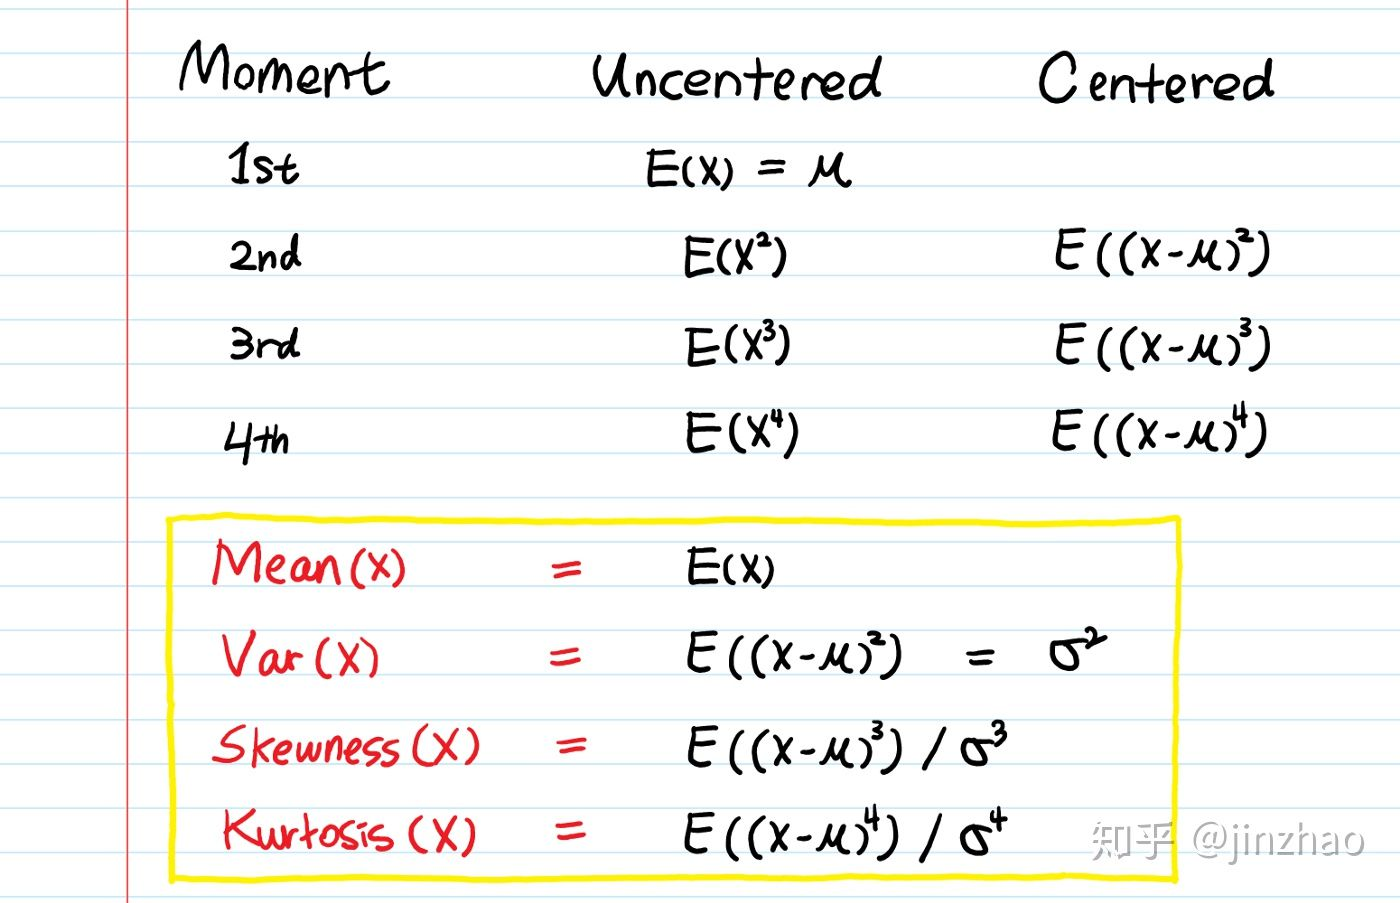 Moment Uncentered Centered
1st E(X) = μ
2nd E(X²) E((X-μ)²)
3rd E(X³) E((X-μ)³)
4th E(X⁴) E((X-μ)⁴)
Mean(X) = E(X)
Var(X) = E((X-μ)²) = σ²
Skewness(X) = E((X-μ)³) / σ³
Kurtosis(X) = E((X-μ)⁴) / σ⁴
知乎 @jinzhao